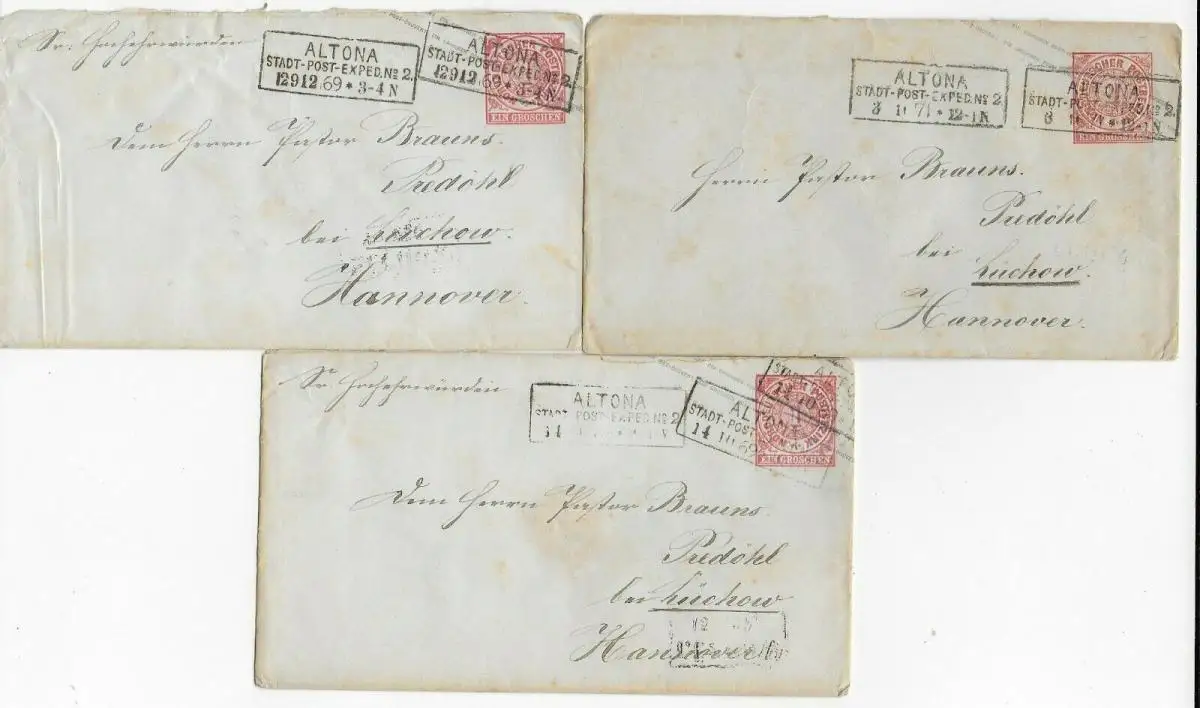 Sr. Hochehrwürden
ALTONA
STADT-POST-EXPED. No 2.
12912.69 * 3-4 N
ALTONA
STADT-POST-EXPED. No 2.
12912.69 * 3-4 N
EIN GROSCHEN
Dem Herrn Pastor Brauns.
Predöhl
bei Lüchow.
Hannover.
ALTONA
STADT-POST-EXPED. No 2
3 11 71 * 12-1 N
ALTONA
STADT-PO No 2.
12-1N
EIN GROSCHEN
Herrn Pastor Brauns.
Predöhl
bei
Lüchow.
Hannover.
Sr. Hochehrwürden
ALTONA
STADT-POST-EXPED. No 2
14
ALTONA
STADT-POST-
14 10 69
EIN GROSCHEN
Dem Herrn Pastor Brauns.
Predöhl
bei Lüchow
Hannover